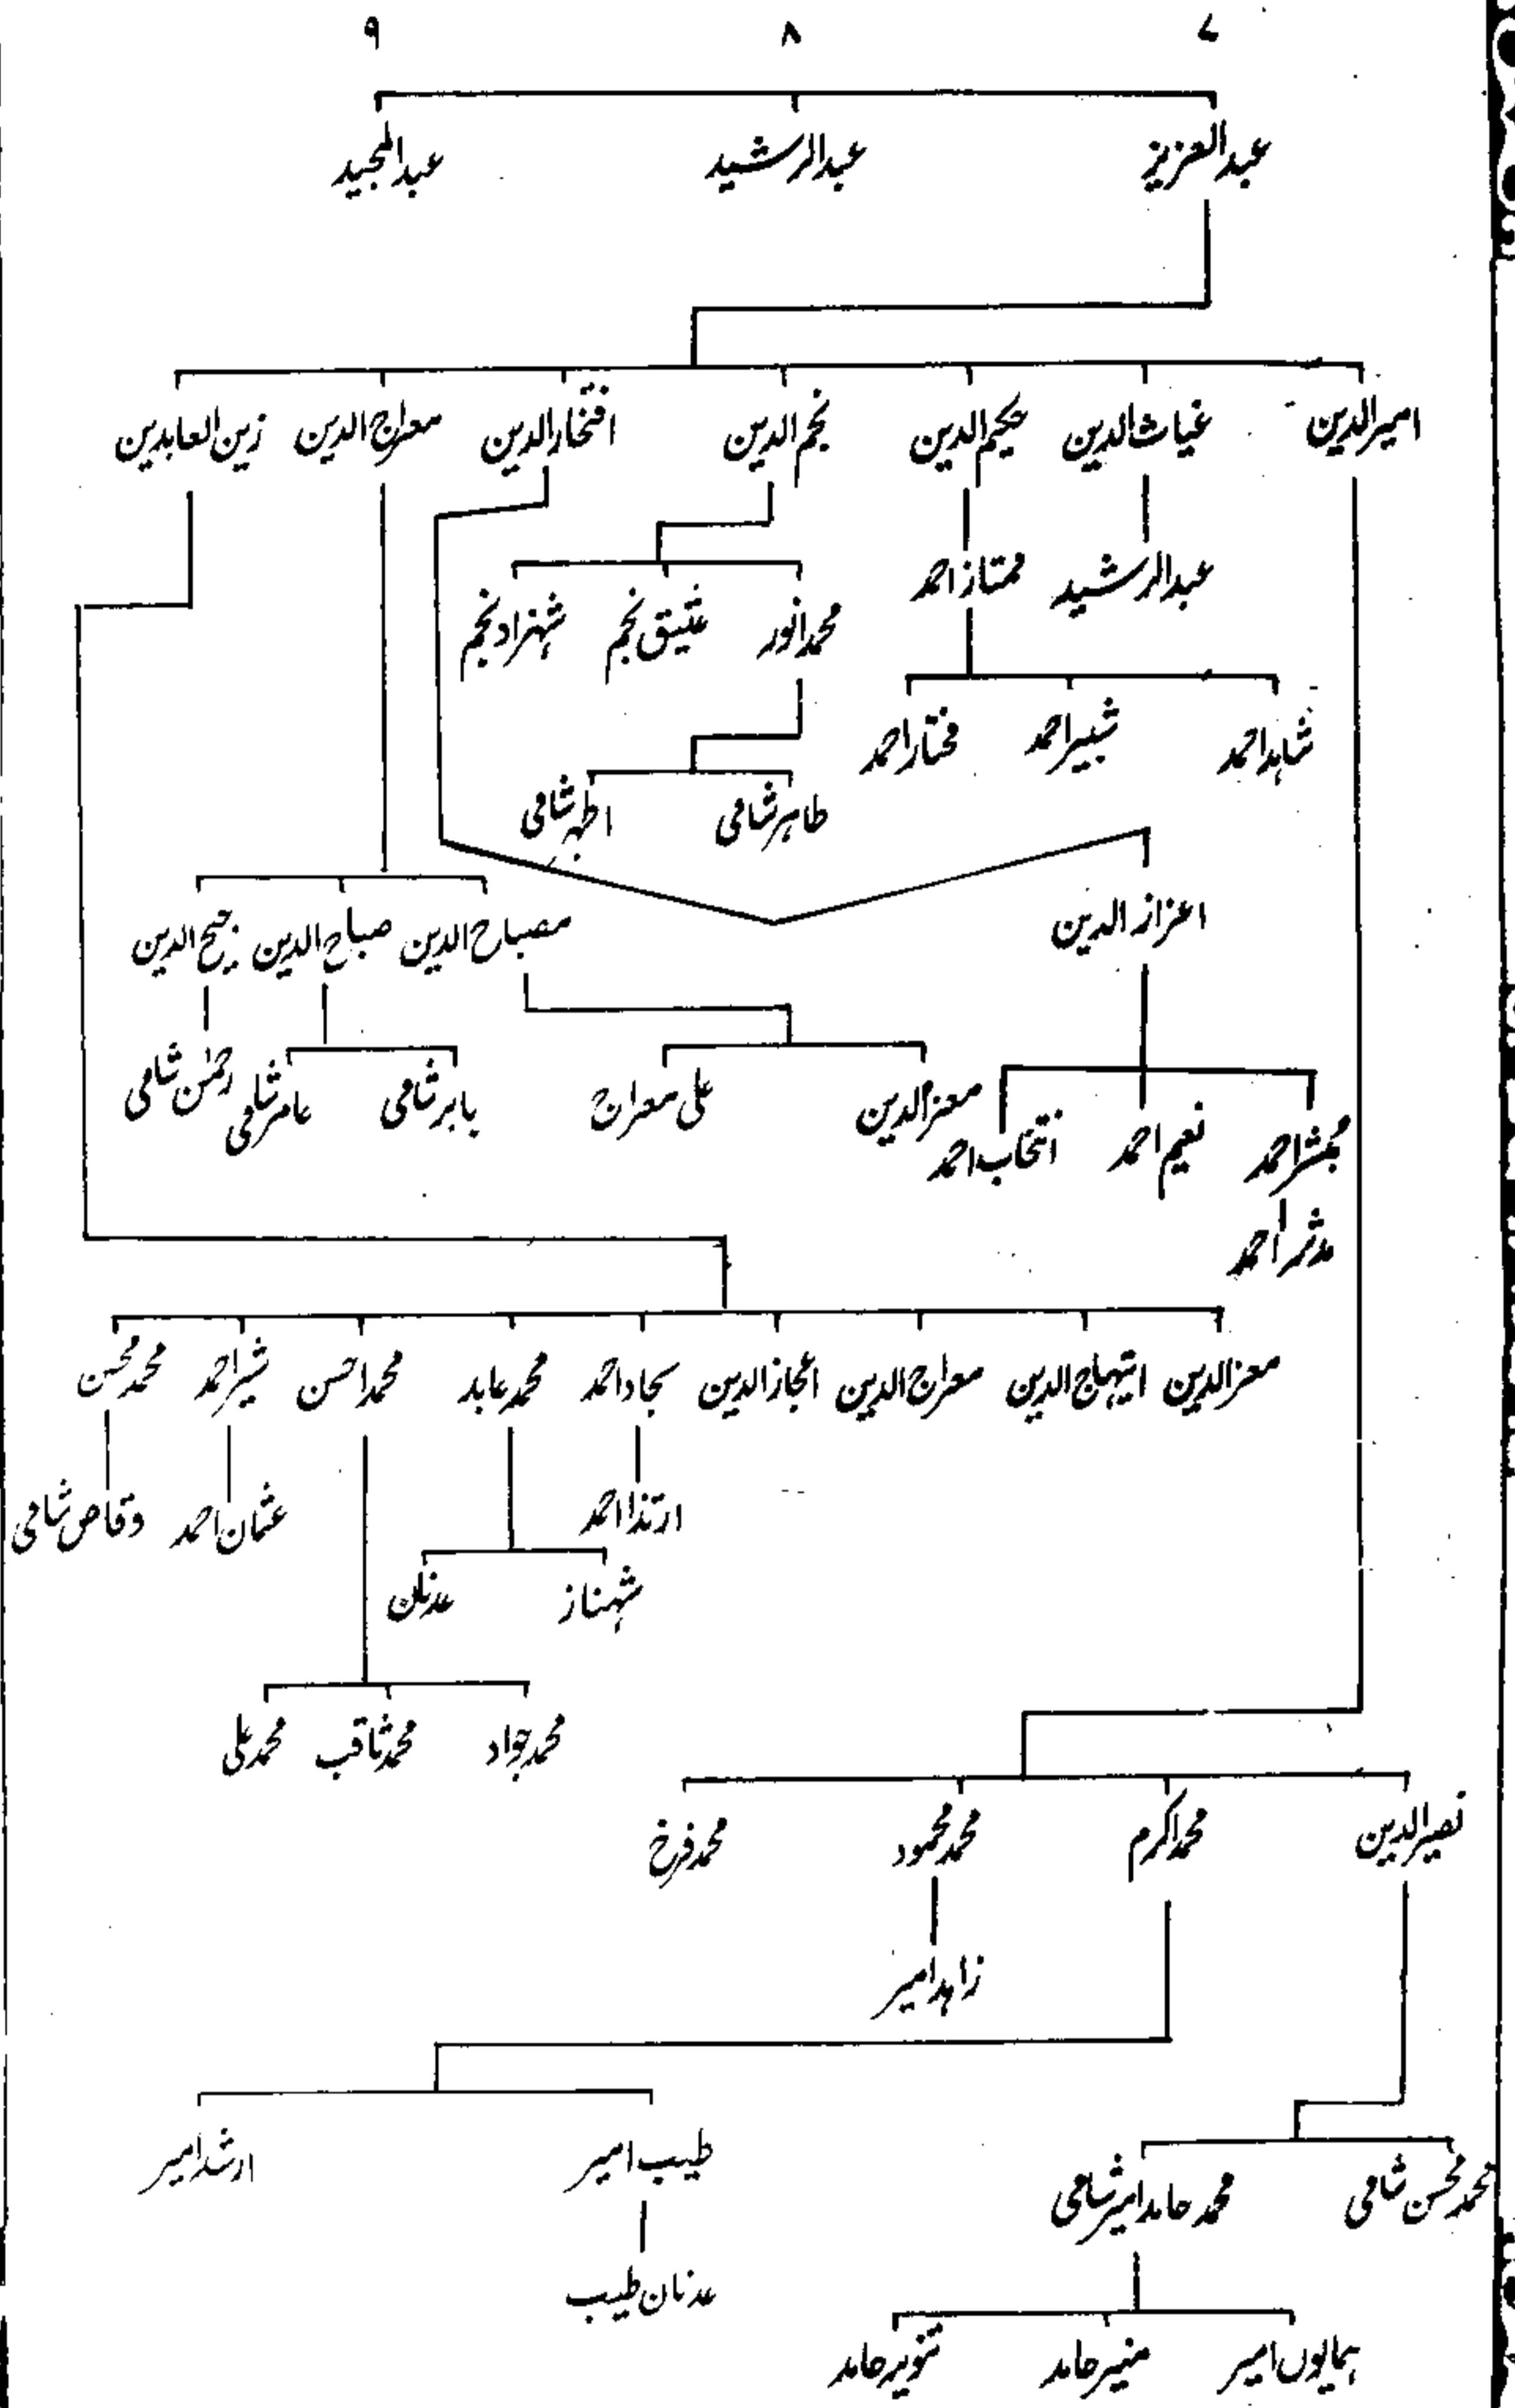 ۷ ۸ ۹
عبدالعزیز عبدالرشید عبدالمجید
امیرالدین غیاث الدین حکیم الدین نجم الدین افتخارالدین معراج الدین زین العابدین
عبدالرشید ممتاز احمد
محمد انور عتیق نجم شہزاد نجم
شاہد احمد شبیر احمد مختار احمد
طاہر شامی اطہر شامی
اعزاز الدین
مصباح الدین صباح الدین الدین
معز الدین علی معراج بابر شامی عامر شامی رحمٰن شامی
مبشر احمد نعیم احمد انتخاب احمد
مدثر احمد
معز الدین ابتہاج الدین معراج الدین اعجاز الدین سجاد احمد محمد عابد محمد احسن بشیر احمد محمد محسن
ارتذا احمد عثمان احمد وقاص شامی
شہناز عدنان
محمد جواد محمد ثاقب محمد علی
نصیر الدین محمد اکرم محمد محمود محمد فرخ
زاہد امیر
طیب امیر ارشد امیر
محمد محسن شامی محمد حامد امیر شامی
عدنان طیب
ہمایوں امیر منیر حامد تنویر حامد